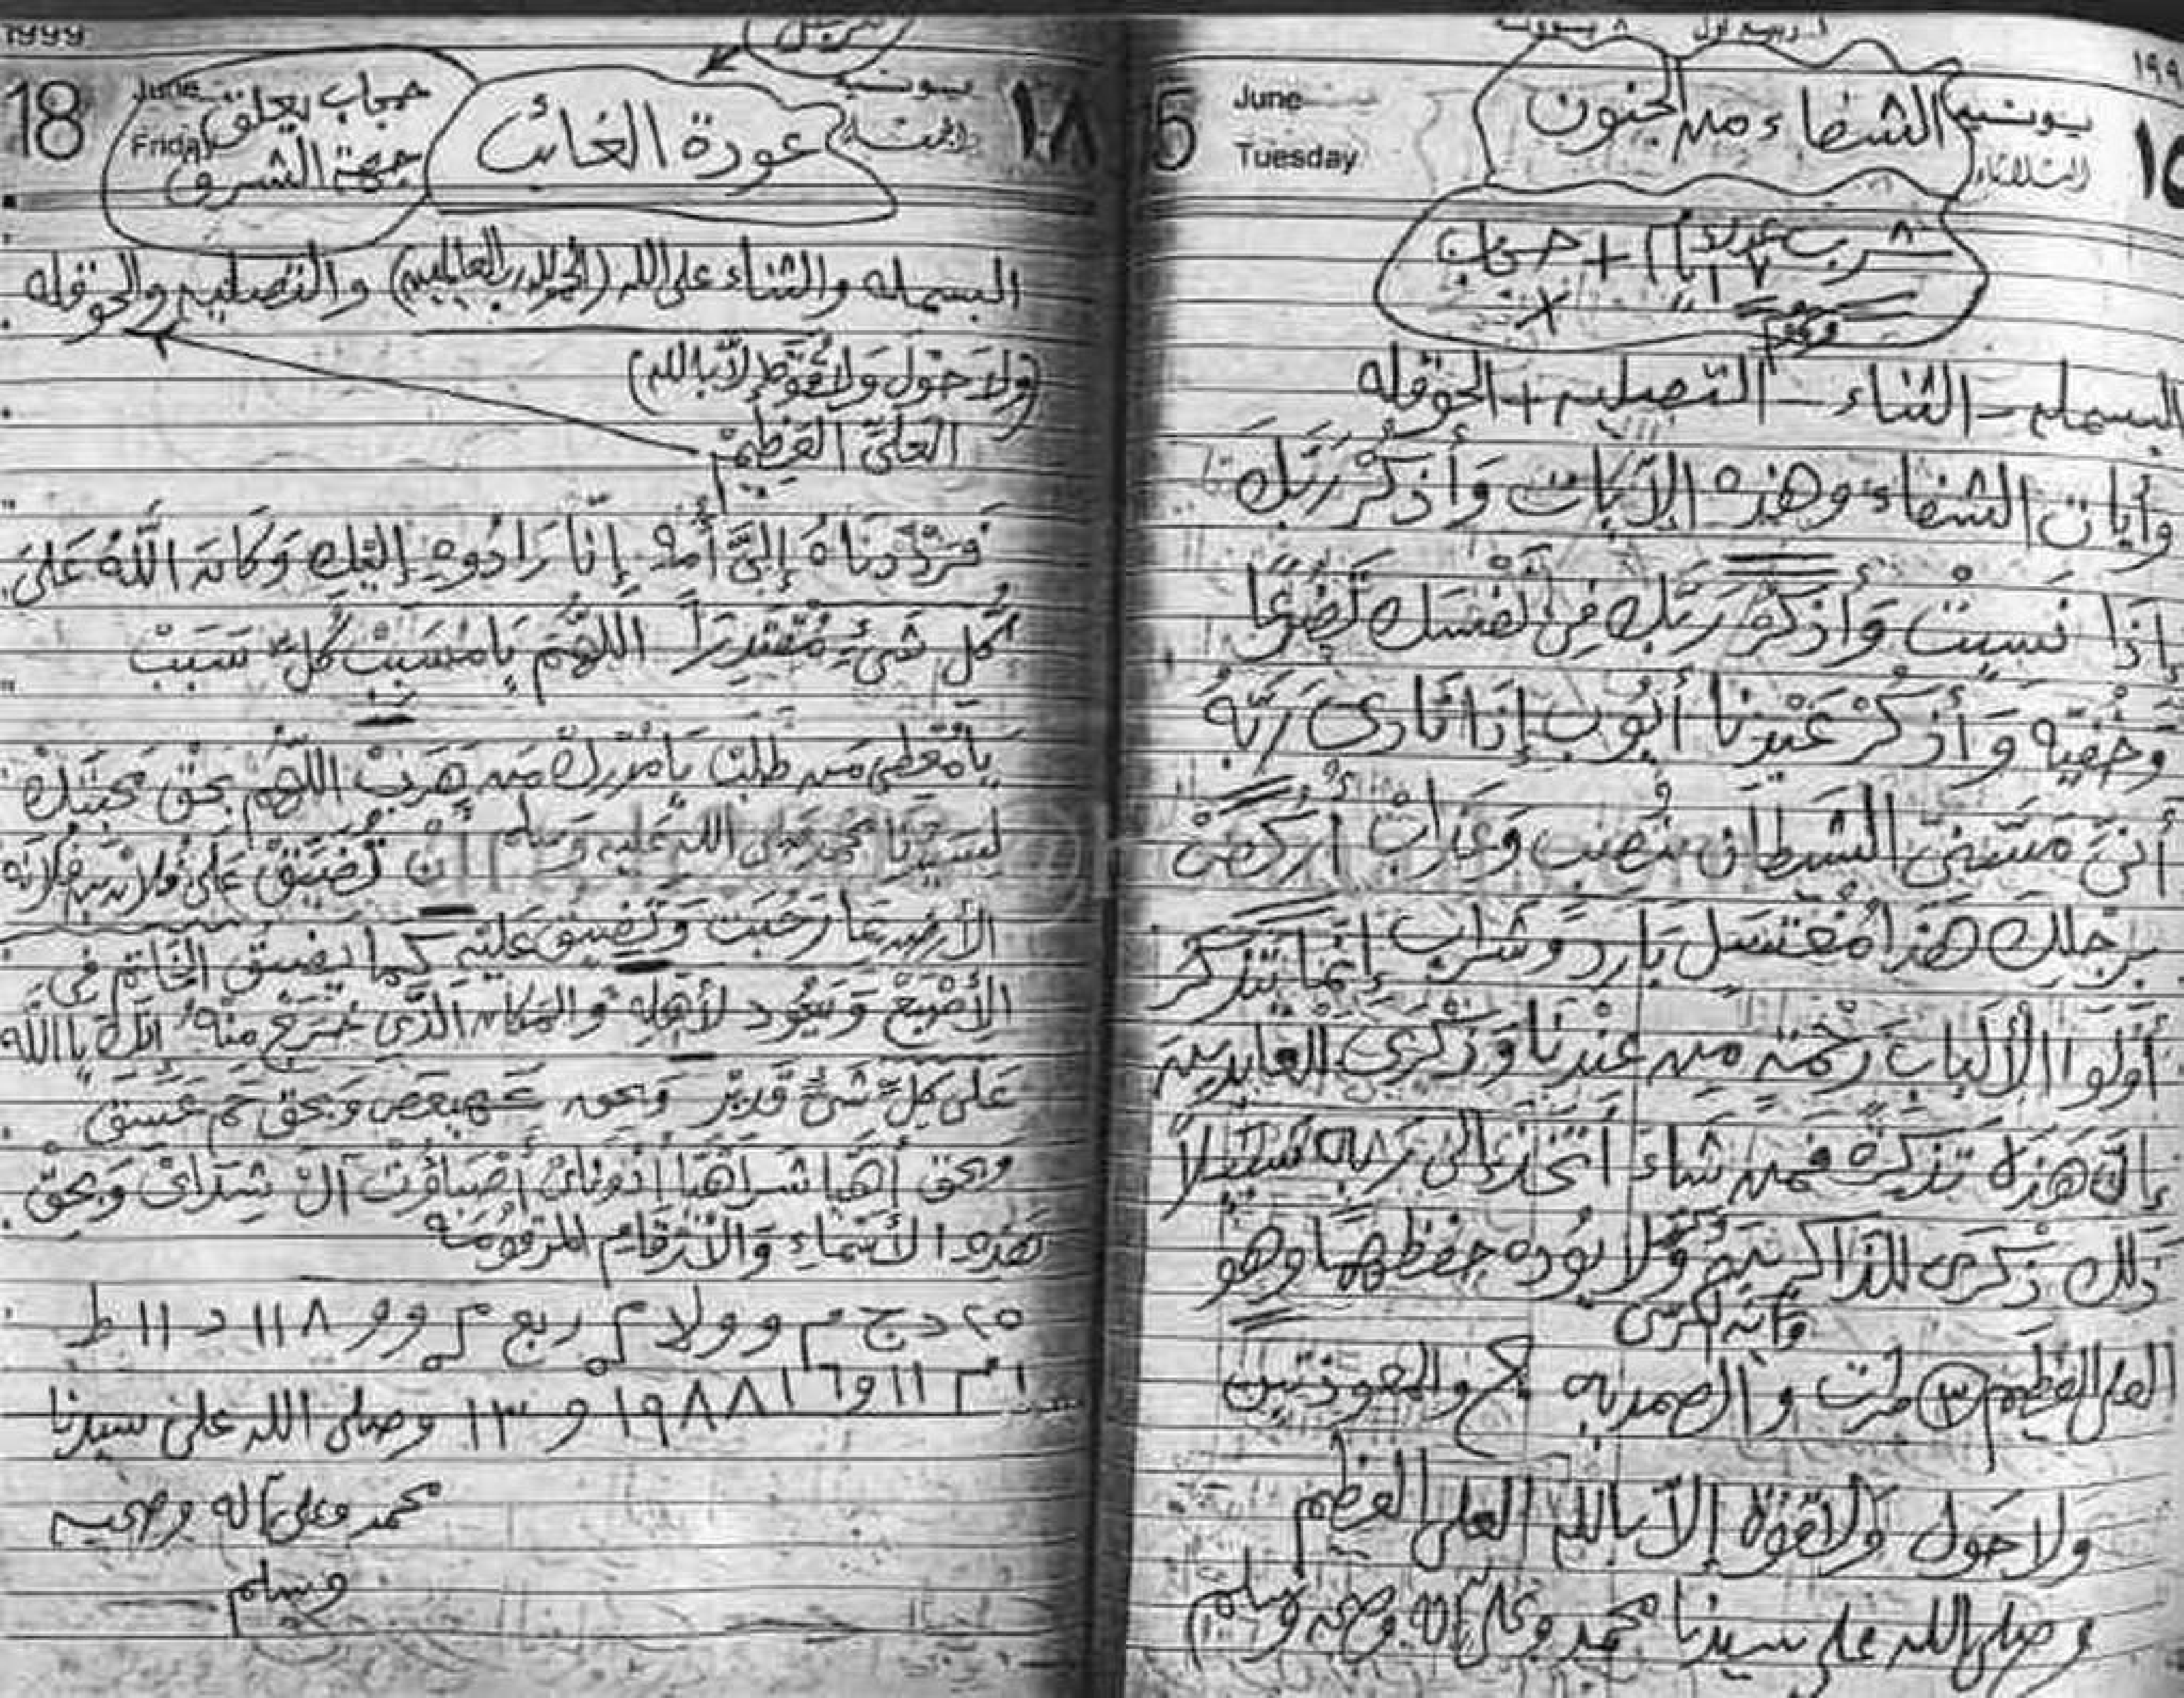 ١٩٩
٨ يونيه
١ ربيع أول
١٥
يونيه
الثلاثاء
June
Tuesday
5
الشفاء من الجنون
شرب ٧ أيام + حجاب
البسمله - الثناء - التصليه + الحوقله
وآيات الشفاء وهذه الآيات وَأذكُرْ رَبَّكَ
إذا نَسِيتَ وَأذكُرْ رَبَّكَ فى نَفْسَك تَضَرُّعًا
وخُفيه وَأذكُرْ عَبْدنا أيّوب إذا نَادى رَبَّهُ
أنّى مَسَّنىَ الشيطان بنُصْبٍ وَعَذاب أركضْ
برِجلك هَذا مُغْتَسل بَارد وَشَراب إنَّما يَتَذكر
أولوا الألباب رَحْمَة مِن عِنْدنا وَذِكرى للعابدين
إنّ هَذه تذكرة فمن شاءَ أتّخذ إلى رَبه سَبيلاً
ذلك ذكرى للذاكرين وَلا يؤده حفظهما وهو
وآية الكرسى
العلى العظيم ٣ مرات والصمديه والمعوذتين
ولا حَول وَلا قوة إلّا بالله العلى العظيم
وصلى الله على سيدنا محمد وعلى آله وصحبه وسلم
1999
18
June
Friday
يونيه
الجمعة
١٨
حجاب يعلق
جهة الشرق
عودة الغائب
البسمله والثناء على الله (الحمد لله رب العالمين) والتصليه والحوقله
(ولا حَوْل وَلا قوة إلّا بالله)
العلىّ العَظيم
فَرَدَدْنَاهُ إلىَ أمه إنّا رَادُوهِ إليْكِ وَكَانَ اللّهُ عَلىَ
كُل شَىْءٍ مُقْتَدِرَاً اللهُمَّ يَا مُسَبِبْ كُلّ سَبَبْ
يَا مُعْطى مَن طَلَبْ يَا مُدْرِكْ مَن هَرَبْ اللهُم بحَق محَبتك
لسَيدنا محمد صلى الله عليه وسلم أنْ تُضَيّقْ عَلى فلان بن فلانه
الأرض بمَا رَحُبَت وَتُضيق عَليْه كما يضيق الخَاتم فى
الأصْبَعْ وَيَعُود لأهلِه والمَكان الذّى خَرَجَ منه إنك يا اللّه
عَلى كلّ شىْ قَديرْ وَبحق كهيعص وَبحَق حم عسق
وبحق أهيا شراهيا أدوناى أصباؤت آل شداى وَبحَقْ
هَذِه الأسْماءِ وَالأرْقام المرقومَة
٢٥ د ج م و ولا م ربع م و و ١١٨ د ١١ ط
١٩٨٨ و ١٣ وصلى الله على سيدنا
محمد وعلى آله وصحبه
وسلم